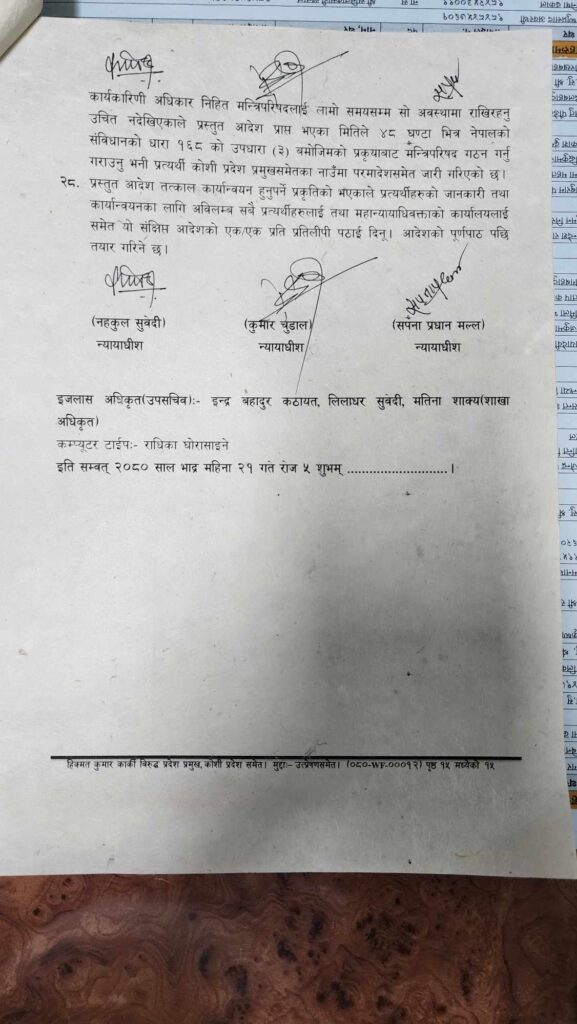 कार्यकारिणी अधिकार निहित मन्त्रिपरिषदलाई लामो समयसम्म सो अवस्थामा राखिरहनु
उचित नदेखिएकाले प्रस्तुत आदेश प्राप्त भएका मितिले ४८ घण्टा भित्र नेपालको
संविधानको धारा १६८ को उपधारा (३) बमोजिमको प्रकृयाबाट मन्त्रिपरिषद गठन गर्नु
गराउनु भनी प्रत्यर्थी कोशी प्रदेश प्रमुखसमेतका नाउँमा परमादेशसमेत जारी गरिएको छ।
२८. प्रस्तुत आदेश तत्काल कार्यान्वयन हुनुपर्ने प्रकृतिको भएकाले प्रत्यर्थीहरुको जानकारी तथा
कार्यान्वयनका लागि अविलम्ब सबै प्रत्यर्थीहरुलाई तथा महान्यायाधिवक्ताको कार्यालयलाई
समेत यो संक्षिप्त आदेशको एक/एक प्रति प्रतिलीपी पठाई दिनू। आदेशको पूर्णपाठ पछि
तयार गरिने छ।
(नहकुल सुवेदी) (कुमार चुडाल) (सपना प्रधान मल्ल)
न्यायाधीश न्यायाधीश न्यायाधीश
इजलास अधिकृत(उपसचिव):- इन्द्र बहादुर कठायत, लिलाधर सुवेदी, मतिना शाक्य(शाखा
अधिकृत)
कम्प्यूटर टाईपः- राधिका घोरासाइने
इति सम्वत् २०८० साल भाद्र महिना २१ गते रोज ५ शुभम् ..........................।
हिक्मत कुमार कार्की विरुद्ध प्रदेश प्रमुख, कोशी प्रदेश समेत। मुद्दाः- उत्प्रेषणसमेत। (०८०-WF-०००१२) पृष्ठ १५ मध्येको १५